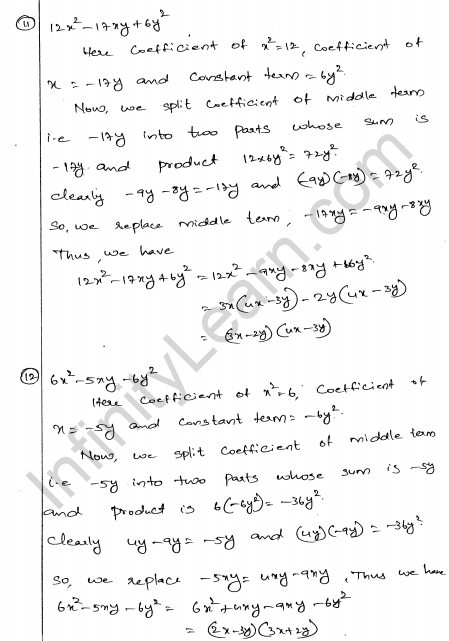 11 12x² - 17xy + 6y²
Here coefficient of x² = 12, coefficient of
x = -17y and constant term = 6y².
Now, we split coefficient of middle term
i.e -17y into two parts whose sum is
-17y and product 12x6y² = 72y².
clearly -9y - 8y = -17y and (-9y)(-8y) = 72y².
So, we replace middle term, -17xy = -9xy - 8xy
Thus, we have
12x² - 17xy + 6y² = 12x² - 9xy - 8xy + 66y²
= 3x(4x - 3y) - 2y(4x - 3y)
= (3x - 2y)(4x - 3y)
12 6x² - 5xy - 6y²
Here coefficient of x² = 6, coefficient of
x = -5y and constant term = -6y².
Now, we split coefficient of middle term
i.e -5y into two parts whose sum is -5y
and product is 6(-6y²) = -36y².
clearly 4y - 9y = -5y and (4y)(-9y) = -36y².
So, we replace -5xy = 4xy - 9xy, Thus we have
6x² - 5xy - 6y² = 6x² + 4xy - 9xy - 6y²
= (2x - 3y)(3x + 2y)
InfinityLearn.com